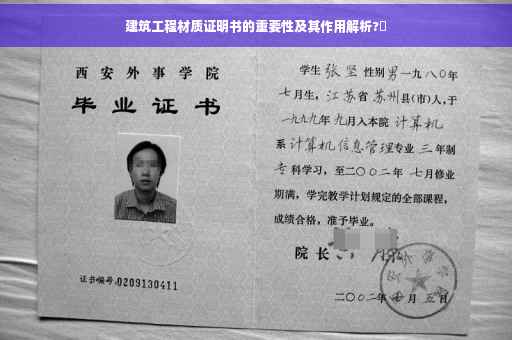 建筑工程材质证明书的重要性及其作用解析?
西安外事学院
毕业证书
证书编号:0209130411
学生 张坚 性别 男 一九八〇年
七月生，江苏省 苏州 县(市)人,于
一九九九年 九月入本院 计算机
系 计算机信息管理 专业 三 年制
专科学习，至二〇〇二年 七月修业
期满，学完教学计划规定的全部课程，
成绩合格，准予毕业。
院长
二〇〇二年 月 五日